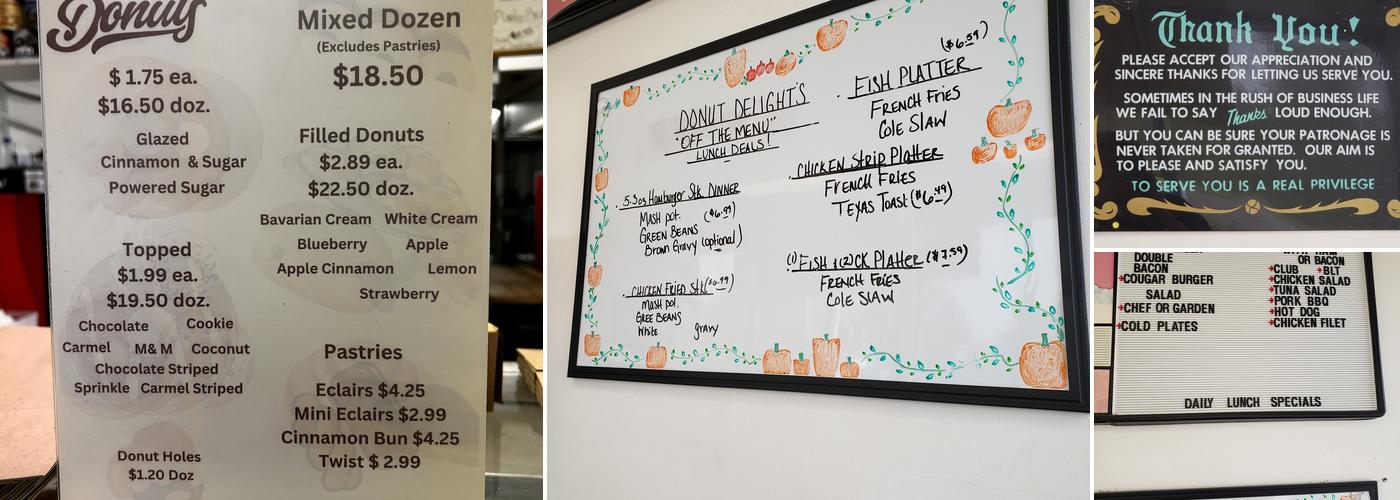 Donuts
$ 1.75 ea.
$16.50 doz.
Glazed
Cinnamon & Sugar
Powered Sugar
Topped
$1.99 ea.
$19.50 doz.
Chocolate Cookie
Carmel M& M Coconut
Chocolate Striped
Sprinkle Carmel Striped
Donut Holes
$1.20 Doz
Mixed Dozen
(Excludes Pastries)
$18.50
Filled Donuts
$2.89 ea.
$22.50 doz.
Bavarian Cream White Cream
Blueberry Apple
Apple Cinnamon Lemon
Strawberry
Pastries
Eclairs $4.25
Mini Eclairs $2.99
Cinnamon Bun $4.25
Twist $ 2.99
DONUT DELIGHT'S
"OFF THE MENU"
LUNCH DEALS!
5-3oz Hamburger Stk DINNER
MASH pot. ($6.99)
GREEN BEANS
Brown Gravy (optional)
CHICKEN FRIED Stk ($6.99)
MASH pot.
GREE BEANS
White gravy
($6.59)
FISH PLATTER
FRENCH FRIES
COLE SLAW
CHICKEN STRIP PLATTER
FRENCH FRIES
TEXAS TOAST ($6.49)
(1) FISH & (2) CK PLATTER ($7.59)
FRENCH FRIES
COLE SLAW
Thank You!
PLEASE ACCEPT OUR APPRECIATION AND
SINCERE THANKS FOR LETTING US SERVE YOU.
SOMETIMES IN THE RUSH OF BUSINESS LIFE
WE FAIL TO SAY Thanks LOUD ENOUGH.
BUT YOU CAN BE SURE YOUR PATRONAGE IS
NEVER TAKEN FOR GRANTED. OUR AIM IS
TO PLEASE AND SATISFY YOU.
TO SERVE YOU IS A REAL PRIVILEGE
DOUBLE
BACON
+COUGAR BURGER
SALAD
+CHEF OR GARDEN
+COLD PLATES
OR BACON
+CLUB +BLT
+CHICKEN SALAD
+TUNA SALAD
+PORK BBQ
+HOT DOG
+CHICKEN FILET
DAILY LUNCH SPECIALS